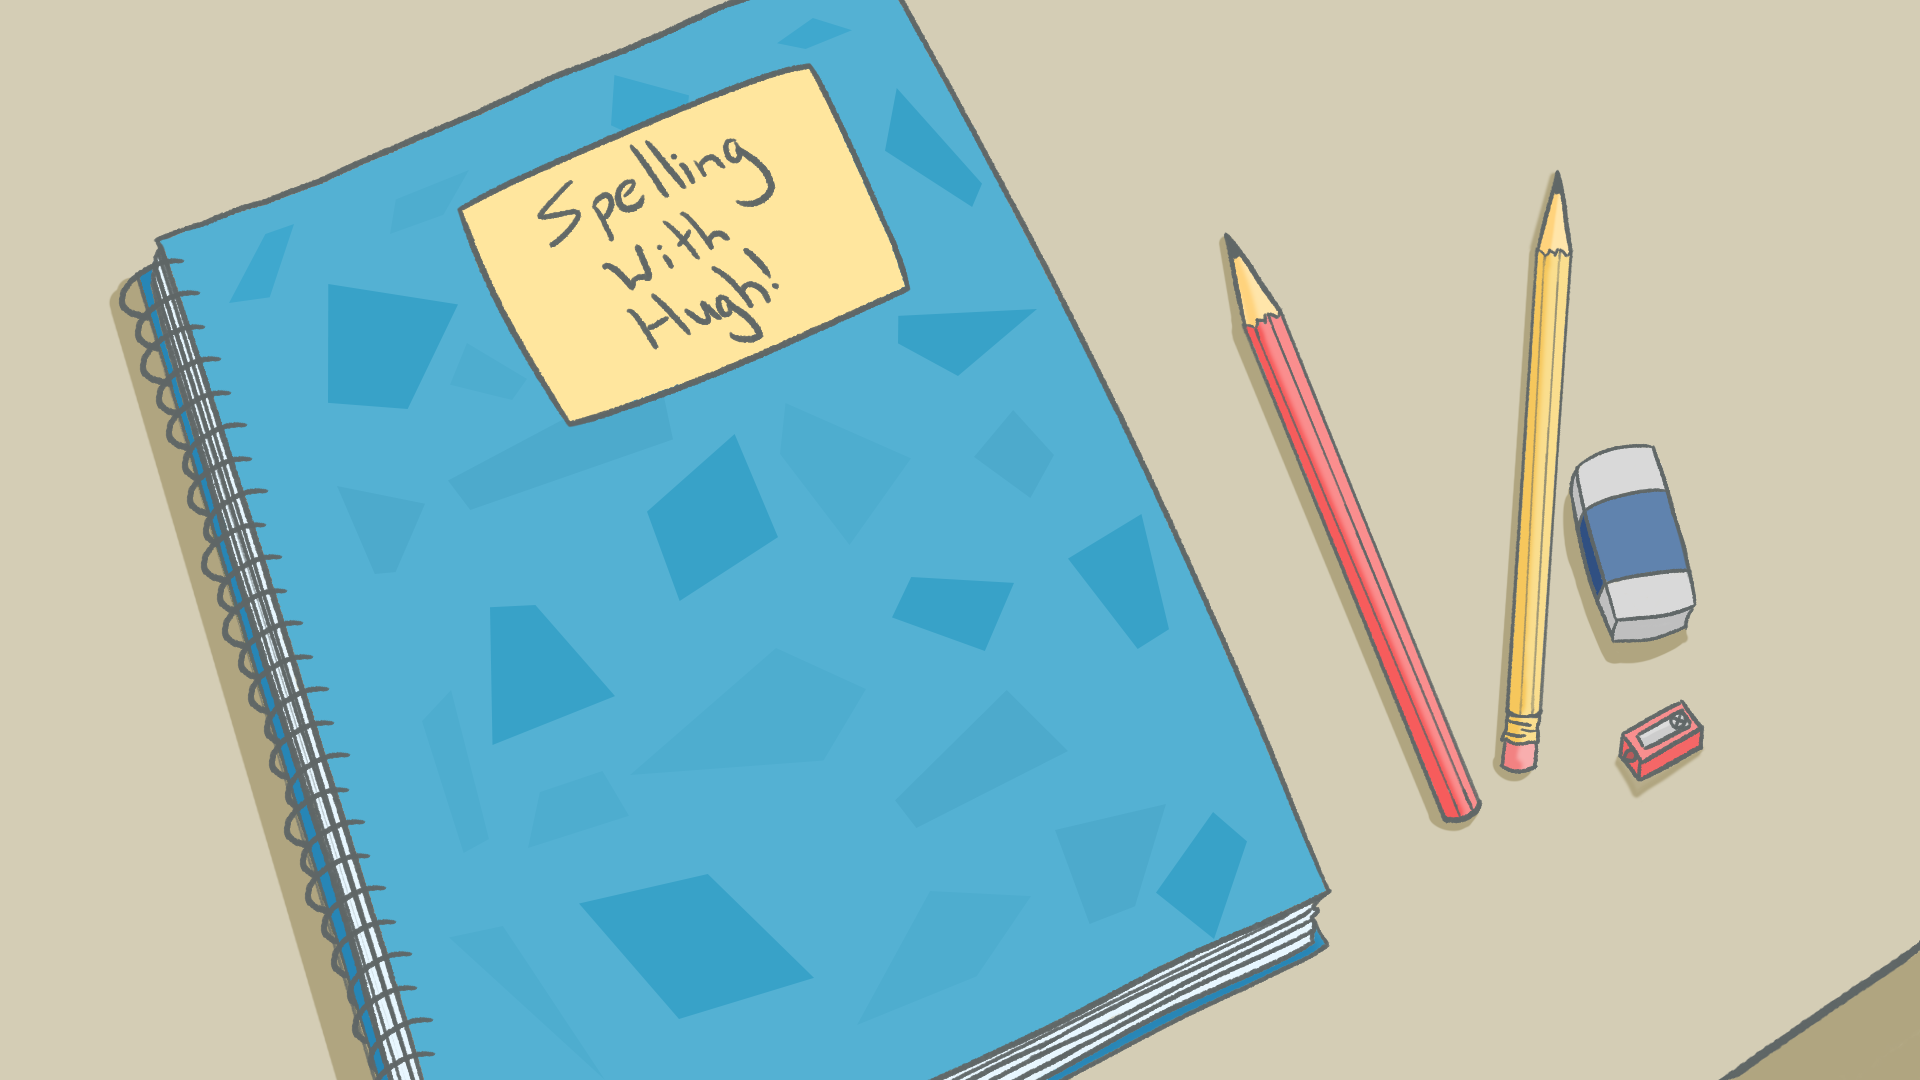 Spelling
With
Hugh!